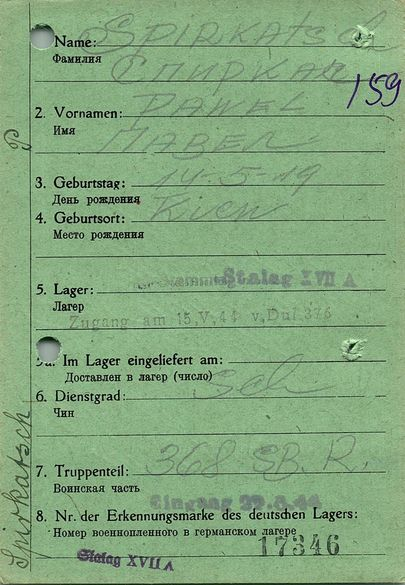 Name: SPIRKATSCH
Фамилия СПИРКАЧ
159
2. Vornamen: PAWEL
Имя ПАВЕЛ
3. Geburtstag: 14-5-19
День рождения
4. Geburtsort: Kiew
Место рождения
Stalag XVII A
5. Lager:
Лагерь
Zugang am 15.V.44 v. Dul. 376
5a. Im Lager eingeliefert am:
Доставлен в лагерь (число)
6. Dienstgrad: Sol.
Чин
7. Truppenteil: 368 SB. R.
Воинская часть
Eingang
8. Nr. der Erkennungsmarke des deutschen Lagers:
Номер военнопленного в германском лагере
17346
Stalag XVII A
Spirkatsch
P